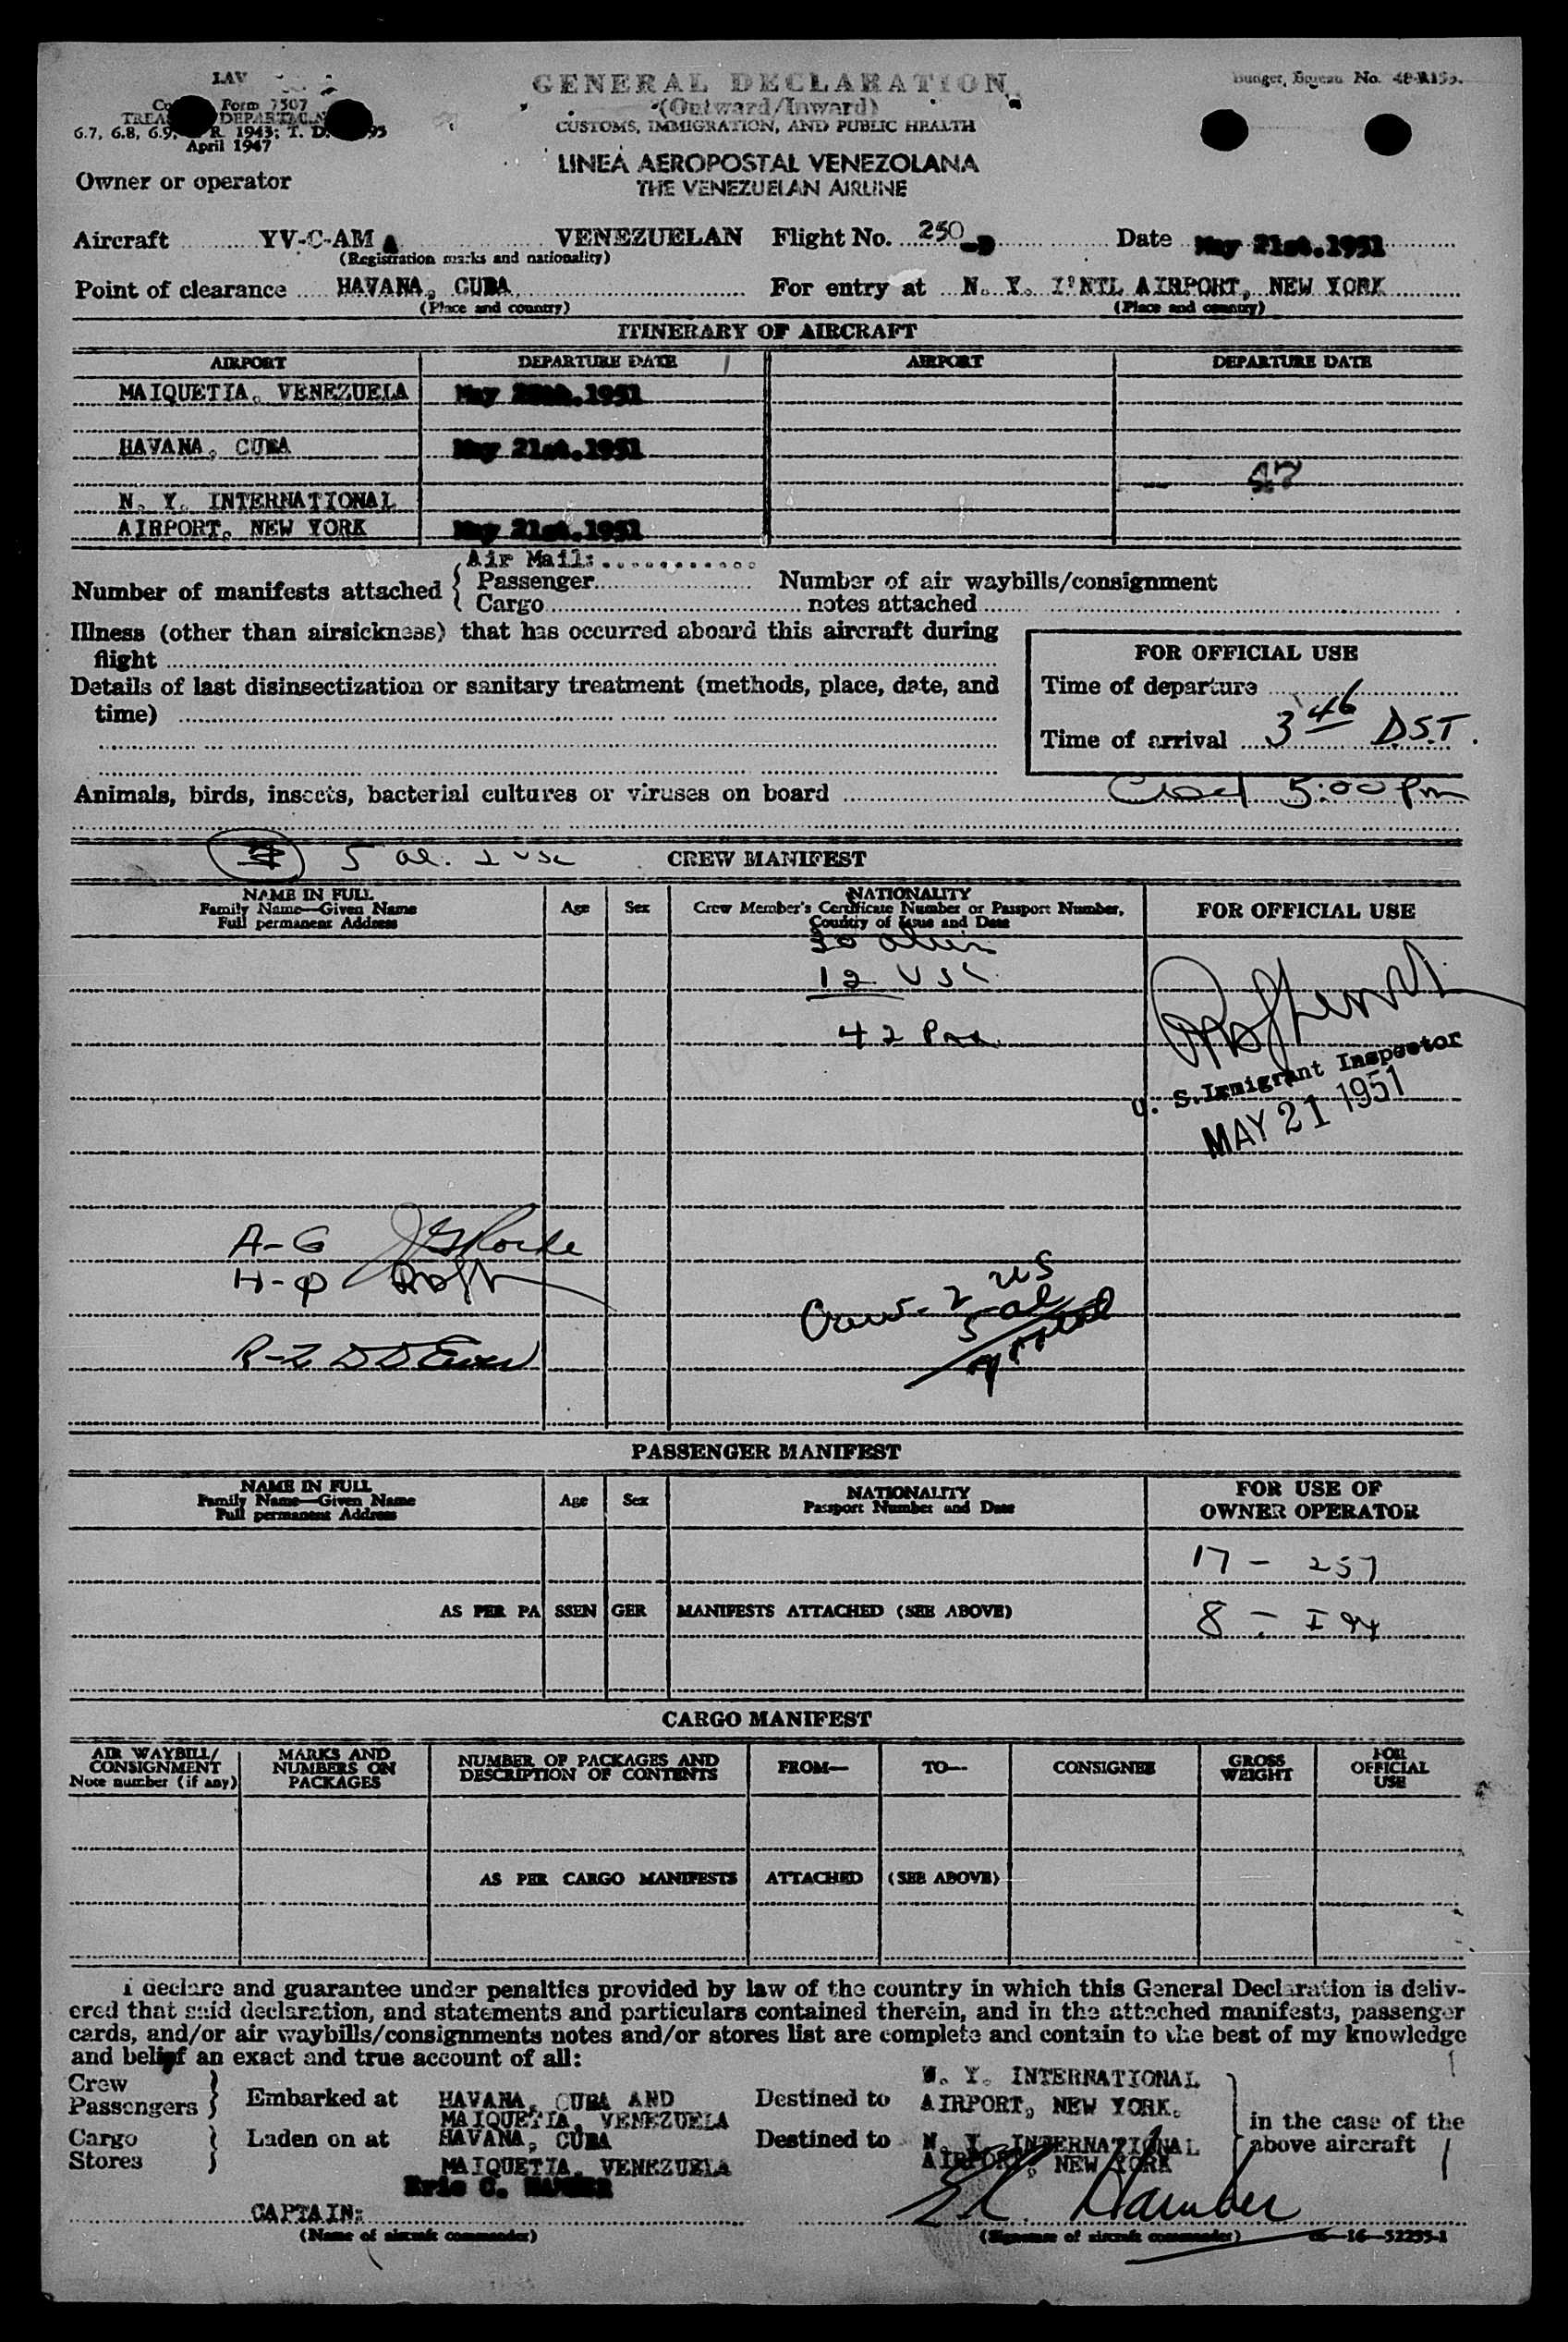 LAV
GENERAL DECLARATION
Budget, Bureau No.
Form 7507
(Outward/Inward)
CUSTOMS, IMMIGRATION, AND PUBLIC HEALTH
6.7, 6.8, 6.9, R. 1943; T. D.
April 1947
LINEA AEROPOSTAL VENEZOLANA
THE VENEZUELAN AIRLINE
Owner or operator
Aircraft YV-C-AMA VENEZUELAN Flight No. 250 Date May 21st.1951
(Registration marks and nationality)
Point of clearance HAVANA, CUBA For entry at N. Y. I'NTL AIRPORT, NEW YORK
(Place and country) (Place and country)
ITINERARY OF AIRCRAFT
AIRPORT DEPARTURE DATE AIRPORT DEPARTURE DATE
MAIQUETIA, VENEZUELA May 1951
HAVANA, CUBA May 21st.1951
N. Y. INTERNATIONAL
AIRPORT, NEW YORK May 21st.1951
Air Mail:
Number of manifests attached { Passenger Number of air waybills/consignment
Cargo notes attached
Illness (other than airsickness) that has occurred aboard this aircraft during
flight
FOR OFFICIAL USE
Details of last disinsectization or sanitary treatment (methods, place, date, and
time)
Time of departure
Time of arrival 3 46 D.S.T.
Animals, birds, insects, bacterial cultures or viruses on board 5:00 Pm
5 al. 2 USC CREW MANIFEST
NAME IN FULL
Family Name—Given Name
Full permanent Address
Age Sex
NATIONALITY
Crew Member's Certificate Number or Passport Number,
Country of Issue and Date
FOR OFFICIAL USE
30 alien
12 USC
42 Pax
U. S. Immigrant Inspector
MAY 21 1951
A-G
H-Q
R-Z
2 US
5 al
PASSENGER MANIFEST
NAME IN FULL
Family Name—Given Name
Full permanent Address
Age Sex
NATIONALITY
Passport Number and Date
FOR USE OF
OWNER OPERATOR
17 - 257
AS PER PASSENGER MANIFESTS ATTACHED (SEE ABOVE)
8 -
CARGO MANIFEST
AIR WAYBILL/
CONSIGNMENT
Note number (if any)
MARKS AND
NUMBERS ON
PACKAGES
NUMBER OF PACKAGES AND
DESCRIPTION OF CONTENTS
FROM—
TO—
CONSIGNEE
GROSS
WEIGHT
FOR
OFFICIAL
USE
AS PER CARGO MANIFESTS ATTACHED (SEE ABOVE)
I declare and guarantee under penalties provided by law of the country in which this General Declaration is deliv-
ered that said declaration, and statements and particulars contained therein, and in the attached manifests, passenger
cards, and/or air waybills/consignments notes and/or stores list are complete and contain to the best of my knowledge
and belief an exact and true account of all:
Crew
Passengers } Embarked at HAVANA, CUBA AND
MAIQUETIA, VENEZUELA
Destined to N. Y. INTERNATIONAL
AIRPORT, NEW YORK.
Cargo
Stores } Laden on at HAVANA, CUBA
MAIQUETIA, VENEZUELA
Destined to N. Y. INTERNATIONAL
AIRPORT, NEW YORK
in the case of the
above aircraft
Eric C.
CAPTAIN:
(Name of aircraft commander)
Hamber
(Signature of aircraft commander) 16—52255-1